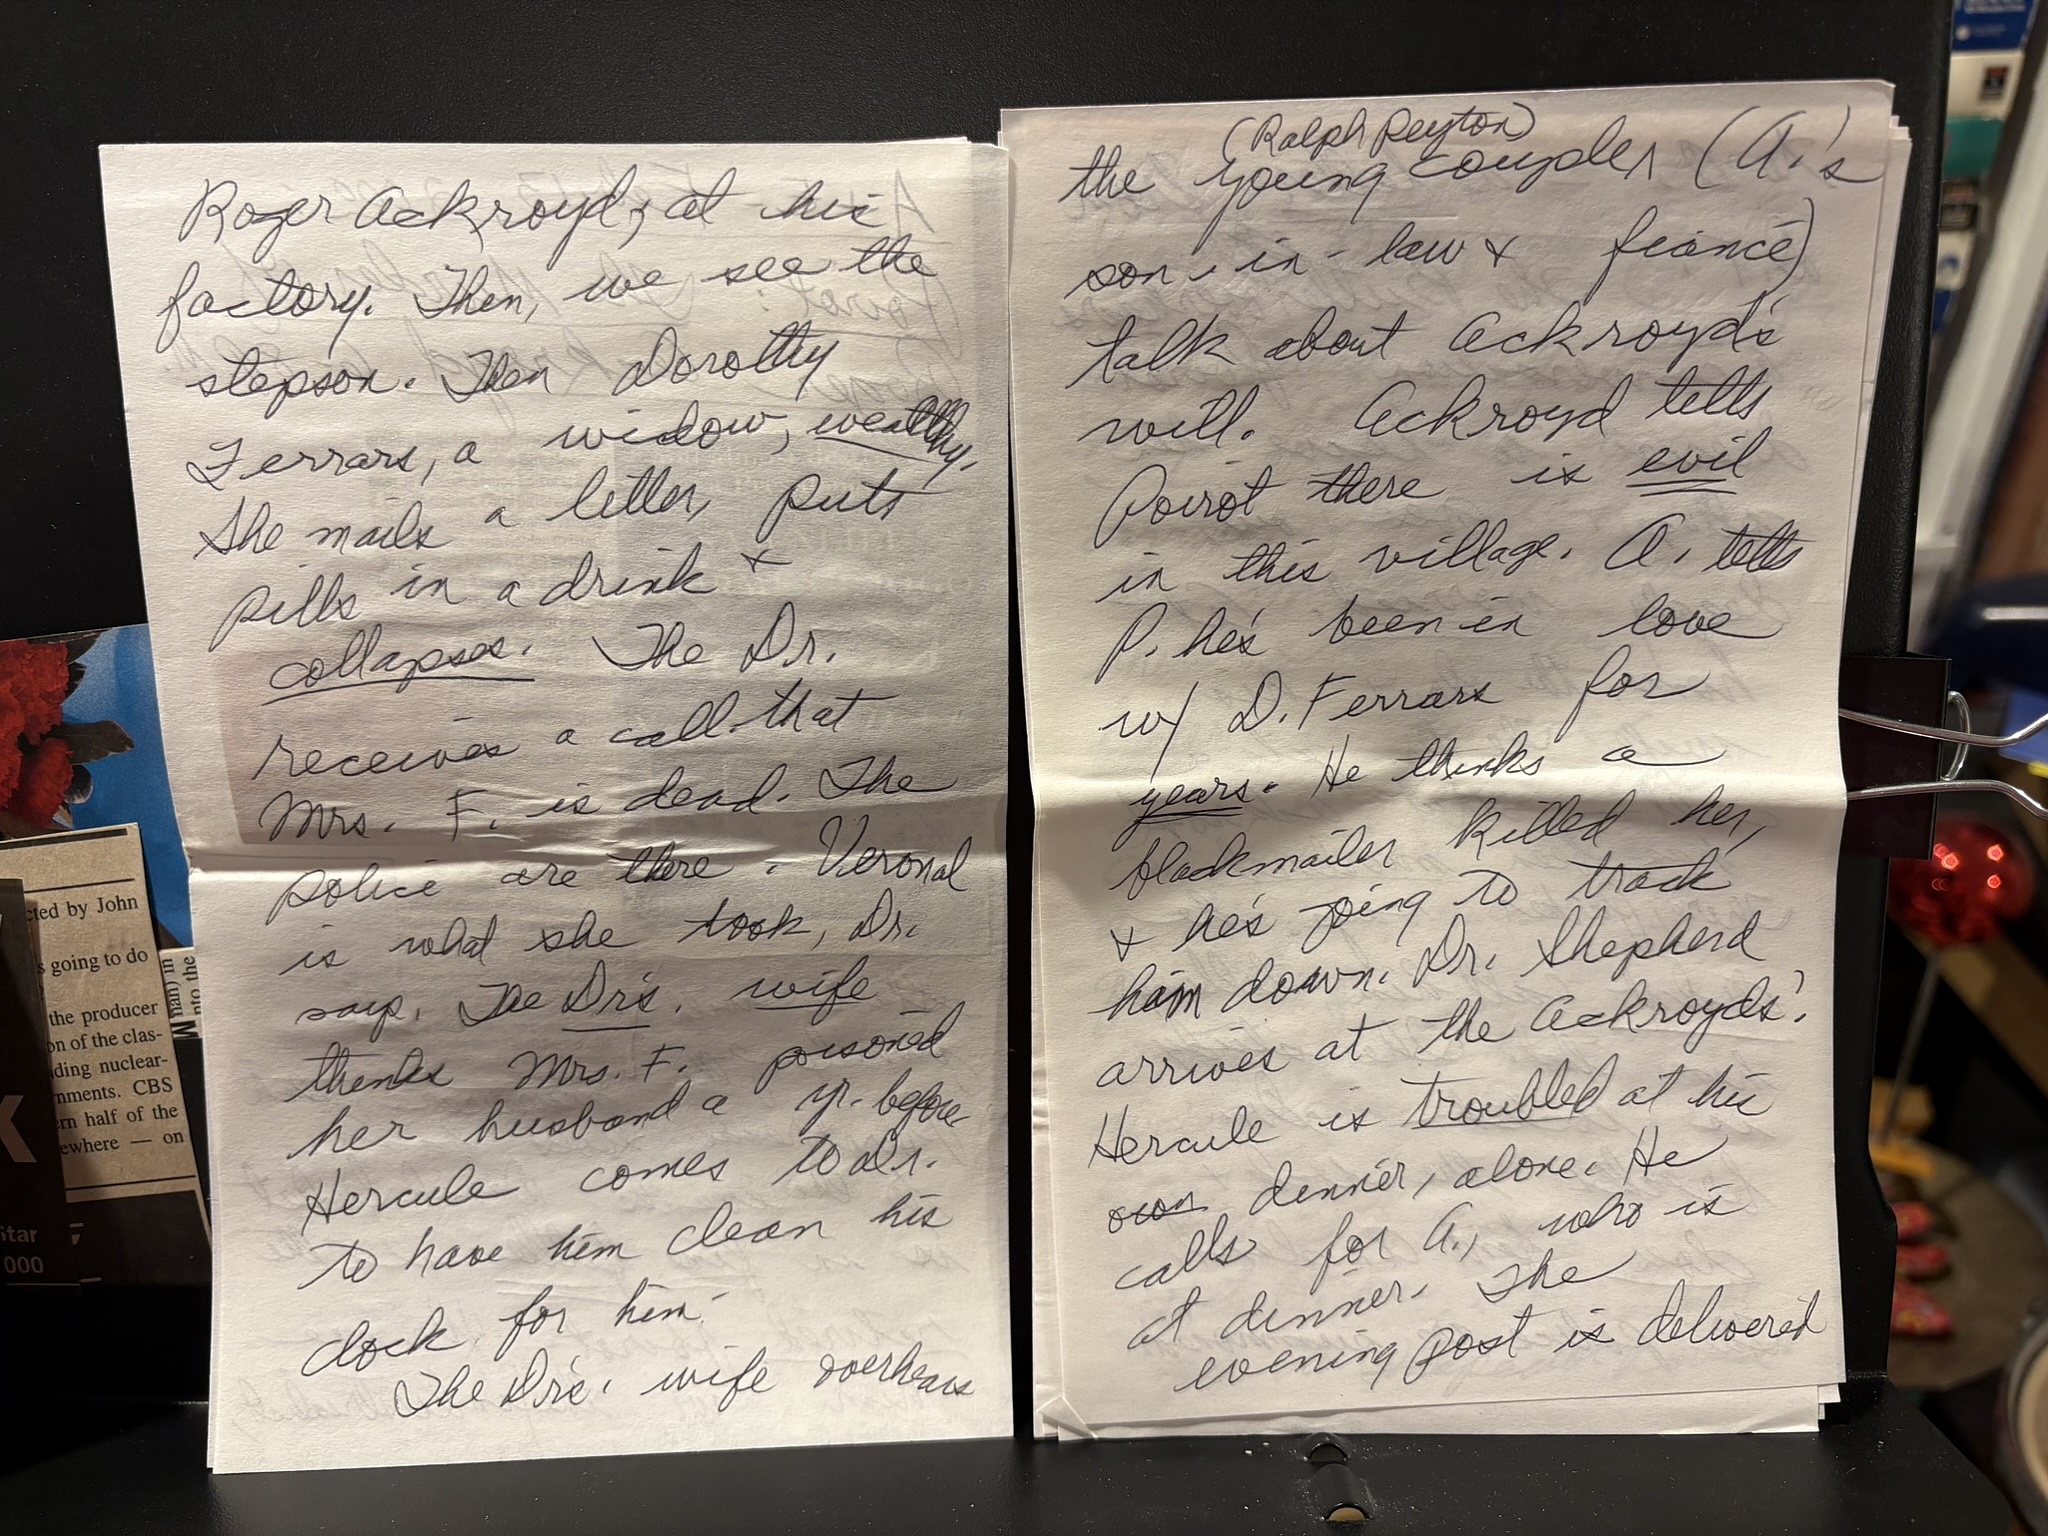 Roger Ackroyd, at his
factory. Then, we see the
stepson. Then Dorothy
Ferrars, a widow, wealthy.
She mails a letter, puts
pills in a drink &
collapses. The Dr.
receives a call that
Mrs. F. is dead. The
police are there. Veronal
is what she took, Dr.
says. The Dr's. wife
thinks Mrs. F. poisoned
her husband a yr. before.
Hercule comes to Dr.
to have him clean his
clock for him.
The Dr's. wife overhears
(Ralph Peyton)
the young couple, (A.'s
son-in-law & fiancé)
talk about Ackroyd's
will. Ackroyd tells
Poirot there is evil
in this village. A. tells
P. he's been in love
w/ D. Ferrars for
years. He thinks a
blackmailer killed her,
& he's going to track
him down. Dr. Shepherd
arrives at the Ackroyds'.
Hercule is troubled at his
own dinner, alone. He
calls for A., who is
at dinner. The
evening post is delivered
cted by John
s going to do
the producer
on of the clas-
ding nuclear-
nments. CBS
ern half of the
ewhere — on
man) in
nto the
Star
000